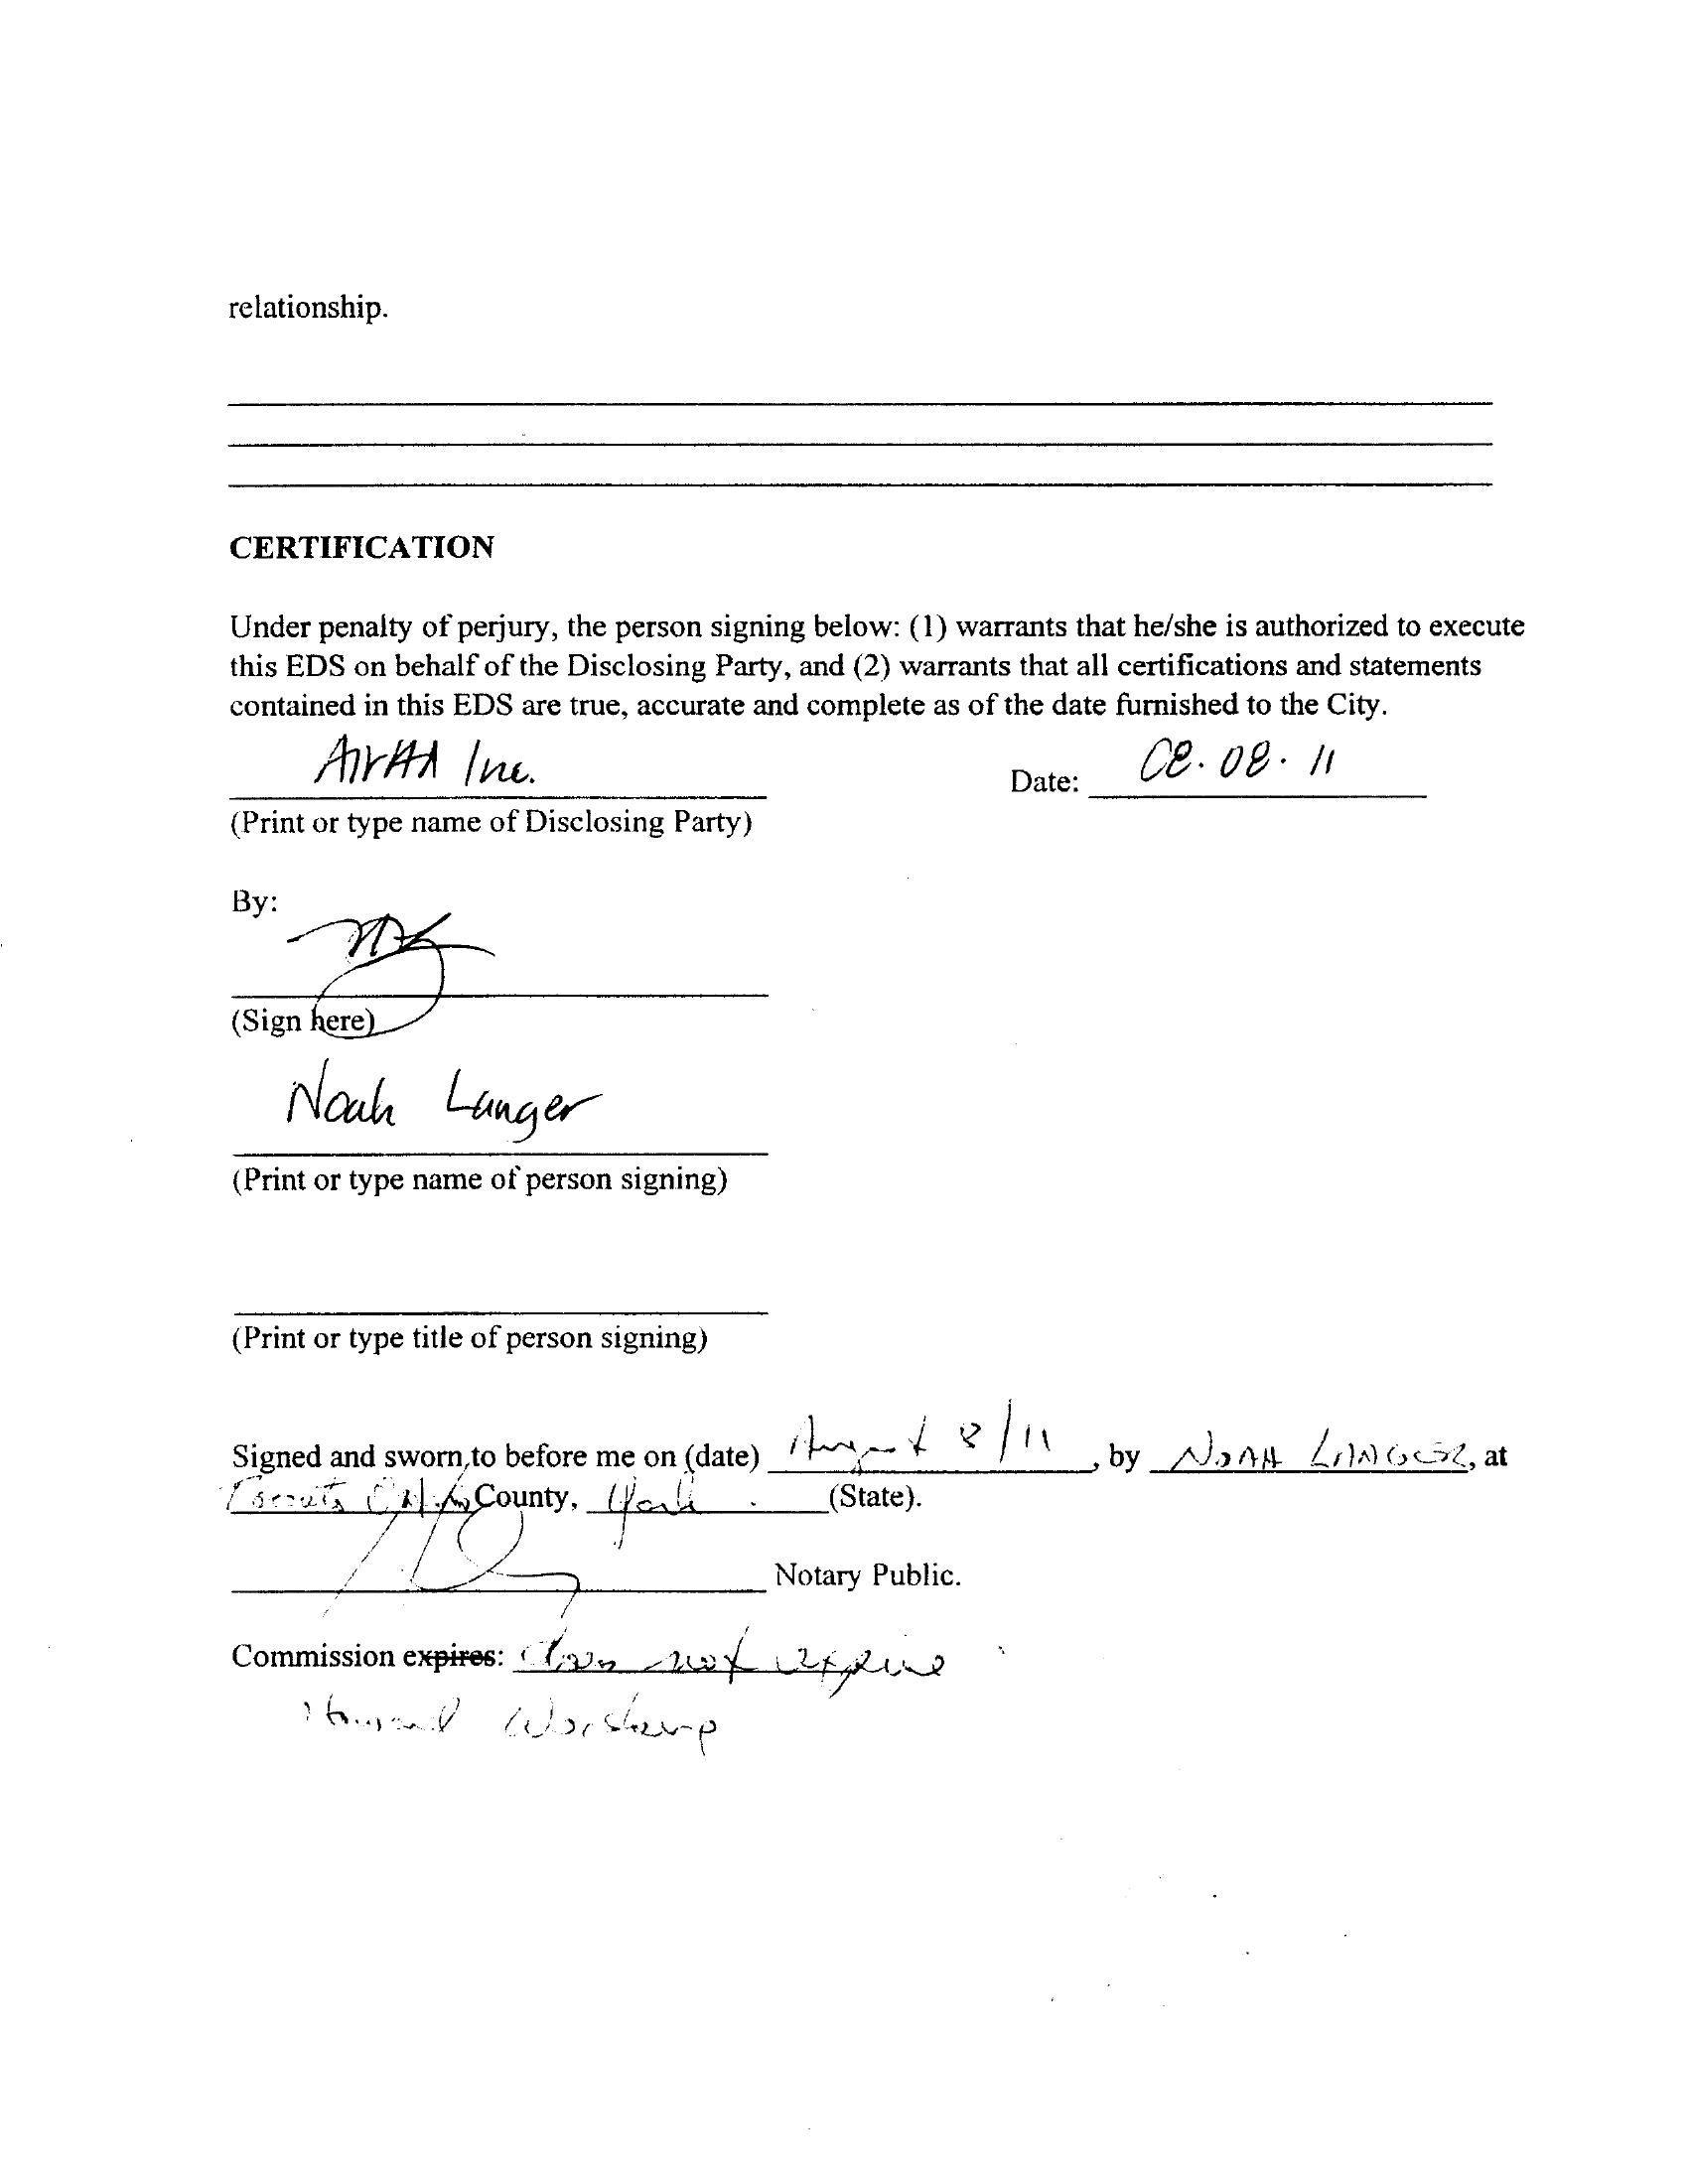 relationship.
CERTIFICATION
Under penalty of perjury, the person signing below: (1) warrants that he/she is authorized to execute
this EDS on behalf of the Disclosing Party, and (2) warrants that all certifications and statements
contained in this EDS are true, accurate and complete as of the date furnished to the City.
Inc. Date: 08.08.11
(Print or type name of Disclosing Party)
By:
(Sign here)
Noah Langer
(Print or type name of person signing)
(Print or type title of person signing)
Signed and sworn to before me on (date) August 8/11, by NOAH LANGER, at
County, York (State).
Notary Public.
Commission expires: does not expire